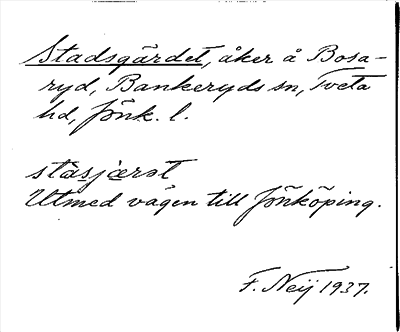 Stadsgärdet, åker å Bosa-
ryd, Bankeryds sn, Tveta
hd, Jönk. l.
stàsjærst
Utmed vägen till Jönköping.
F. Neij 1937.